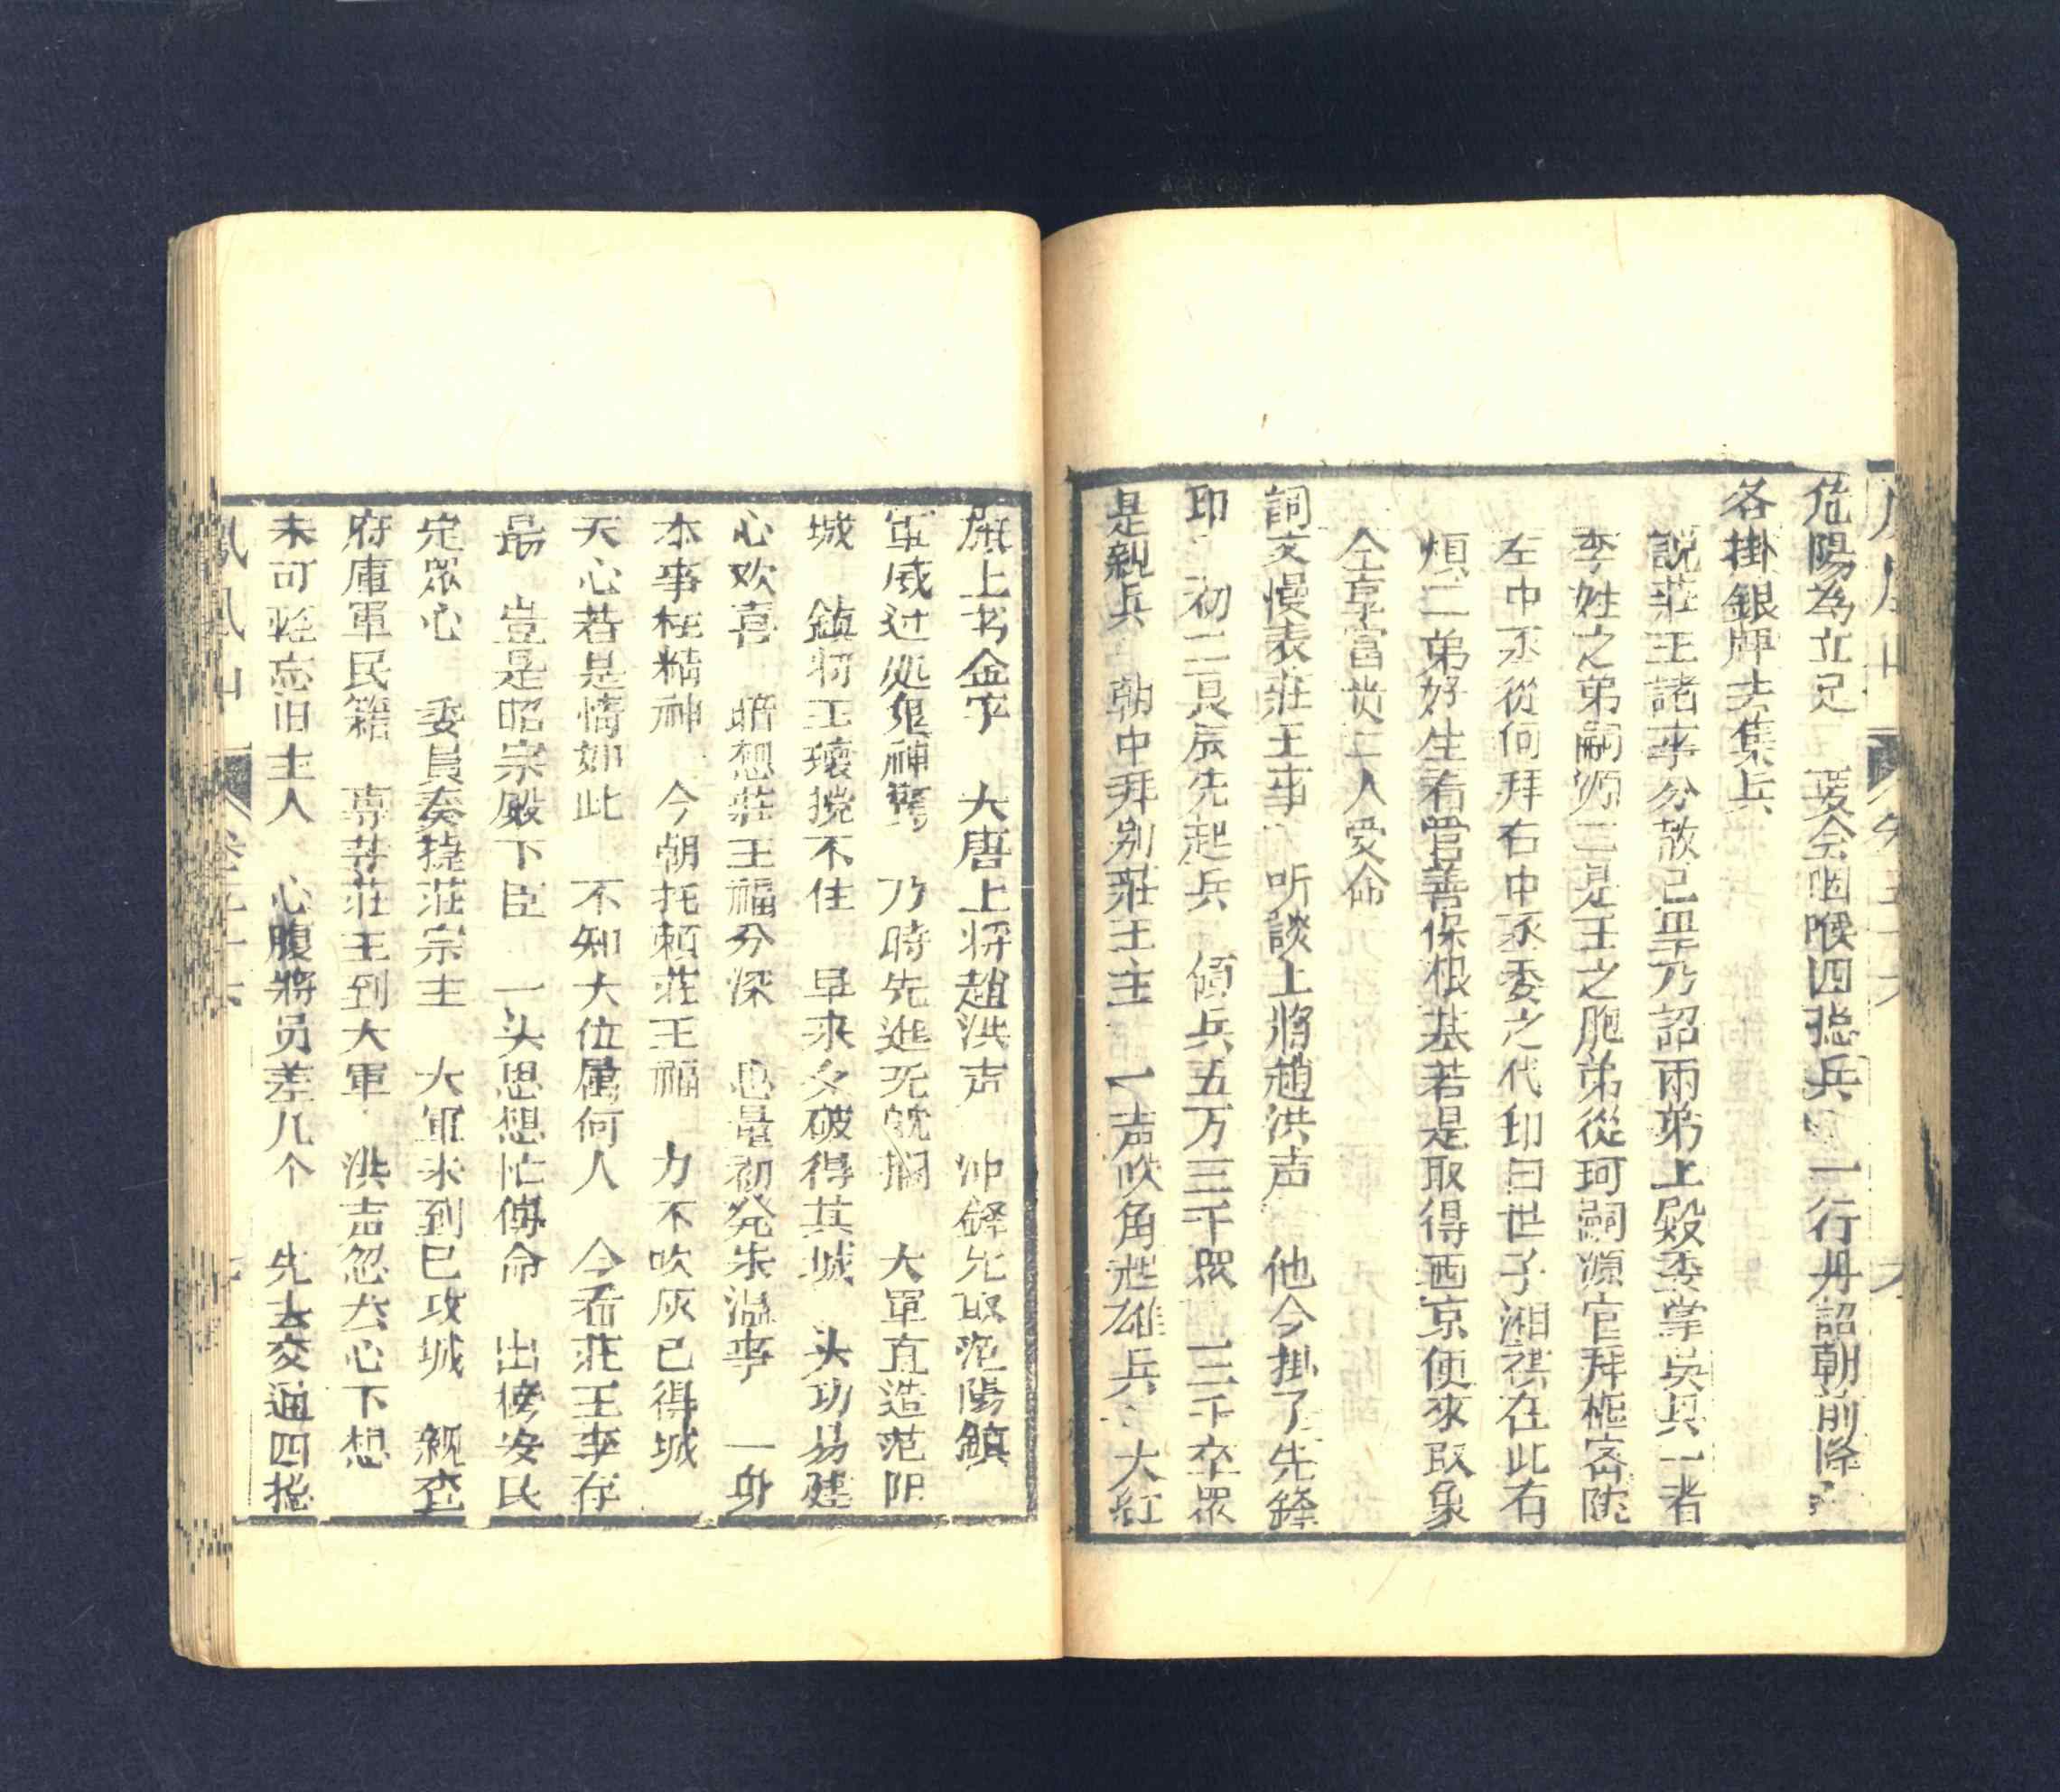 危陽為立足　要会咽喉四捴兵　一行丹詔朝前降
各掛銀牌去集兵
說莊王諸事分散已畢乃詔兩弟上殿委掌兵一者
李姓之弟嗣源二是王之胞弟從珂嗣源官拜樞密院
左中丞從何拜右中丞委之代印曰世子湘祺在此有
煩二弟好生看管善保根基若是取得西京便來取象
仝享富贵二人受命
詞文慢表莊王事　听談上將趙洪声　他今掛了先鋒
印　初二良辰先起兵　傾兵五万三千眾　三千卒眾
是親兵　朝中拜别莊王主　一声吹角起雄兵　大紅
旗上书金字　大唐上将趙洪声　冲鋒先取范陽鎮
軍威过処鬼神驚　乃時先進　大軍直造范阳
城　鎮將王瓌搅不住　早来夕破得其城　头功易建
心欢喜　暗想莊王福分深　思量初発朱温事　一身
本事枉精神　今朝托頼莊王福　力不吹灰已得城
天心若是情如此　不知大位属何人　今看莊王李存
勗　豈是昭宗殿下臣　一头思想忙傳命　出榜安民
定眾心　委員奏捷莊宗主　大軍未到已攻城　親查
府庫軍民籍　專等莊王到大軍　洪声忽然心下想
未可輕忘旧主人　心腹將员差几个　先去交通四捴
鳳凰山　卷二十六